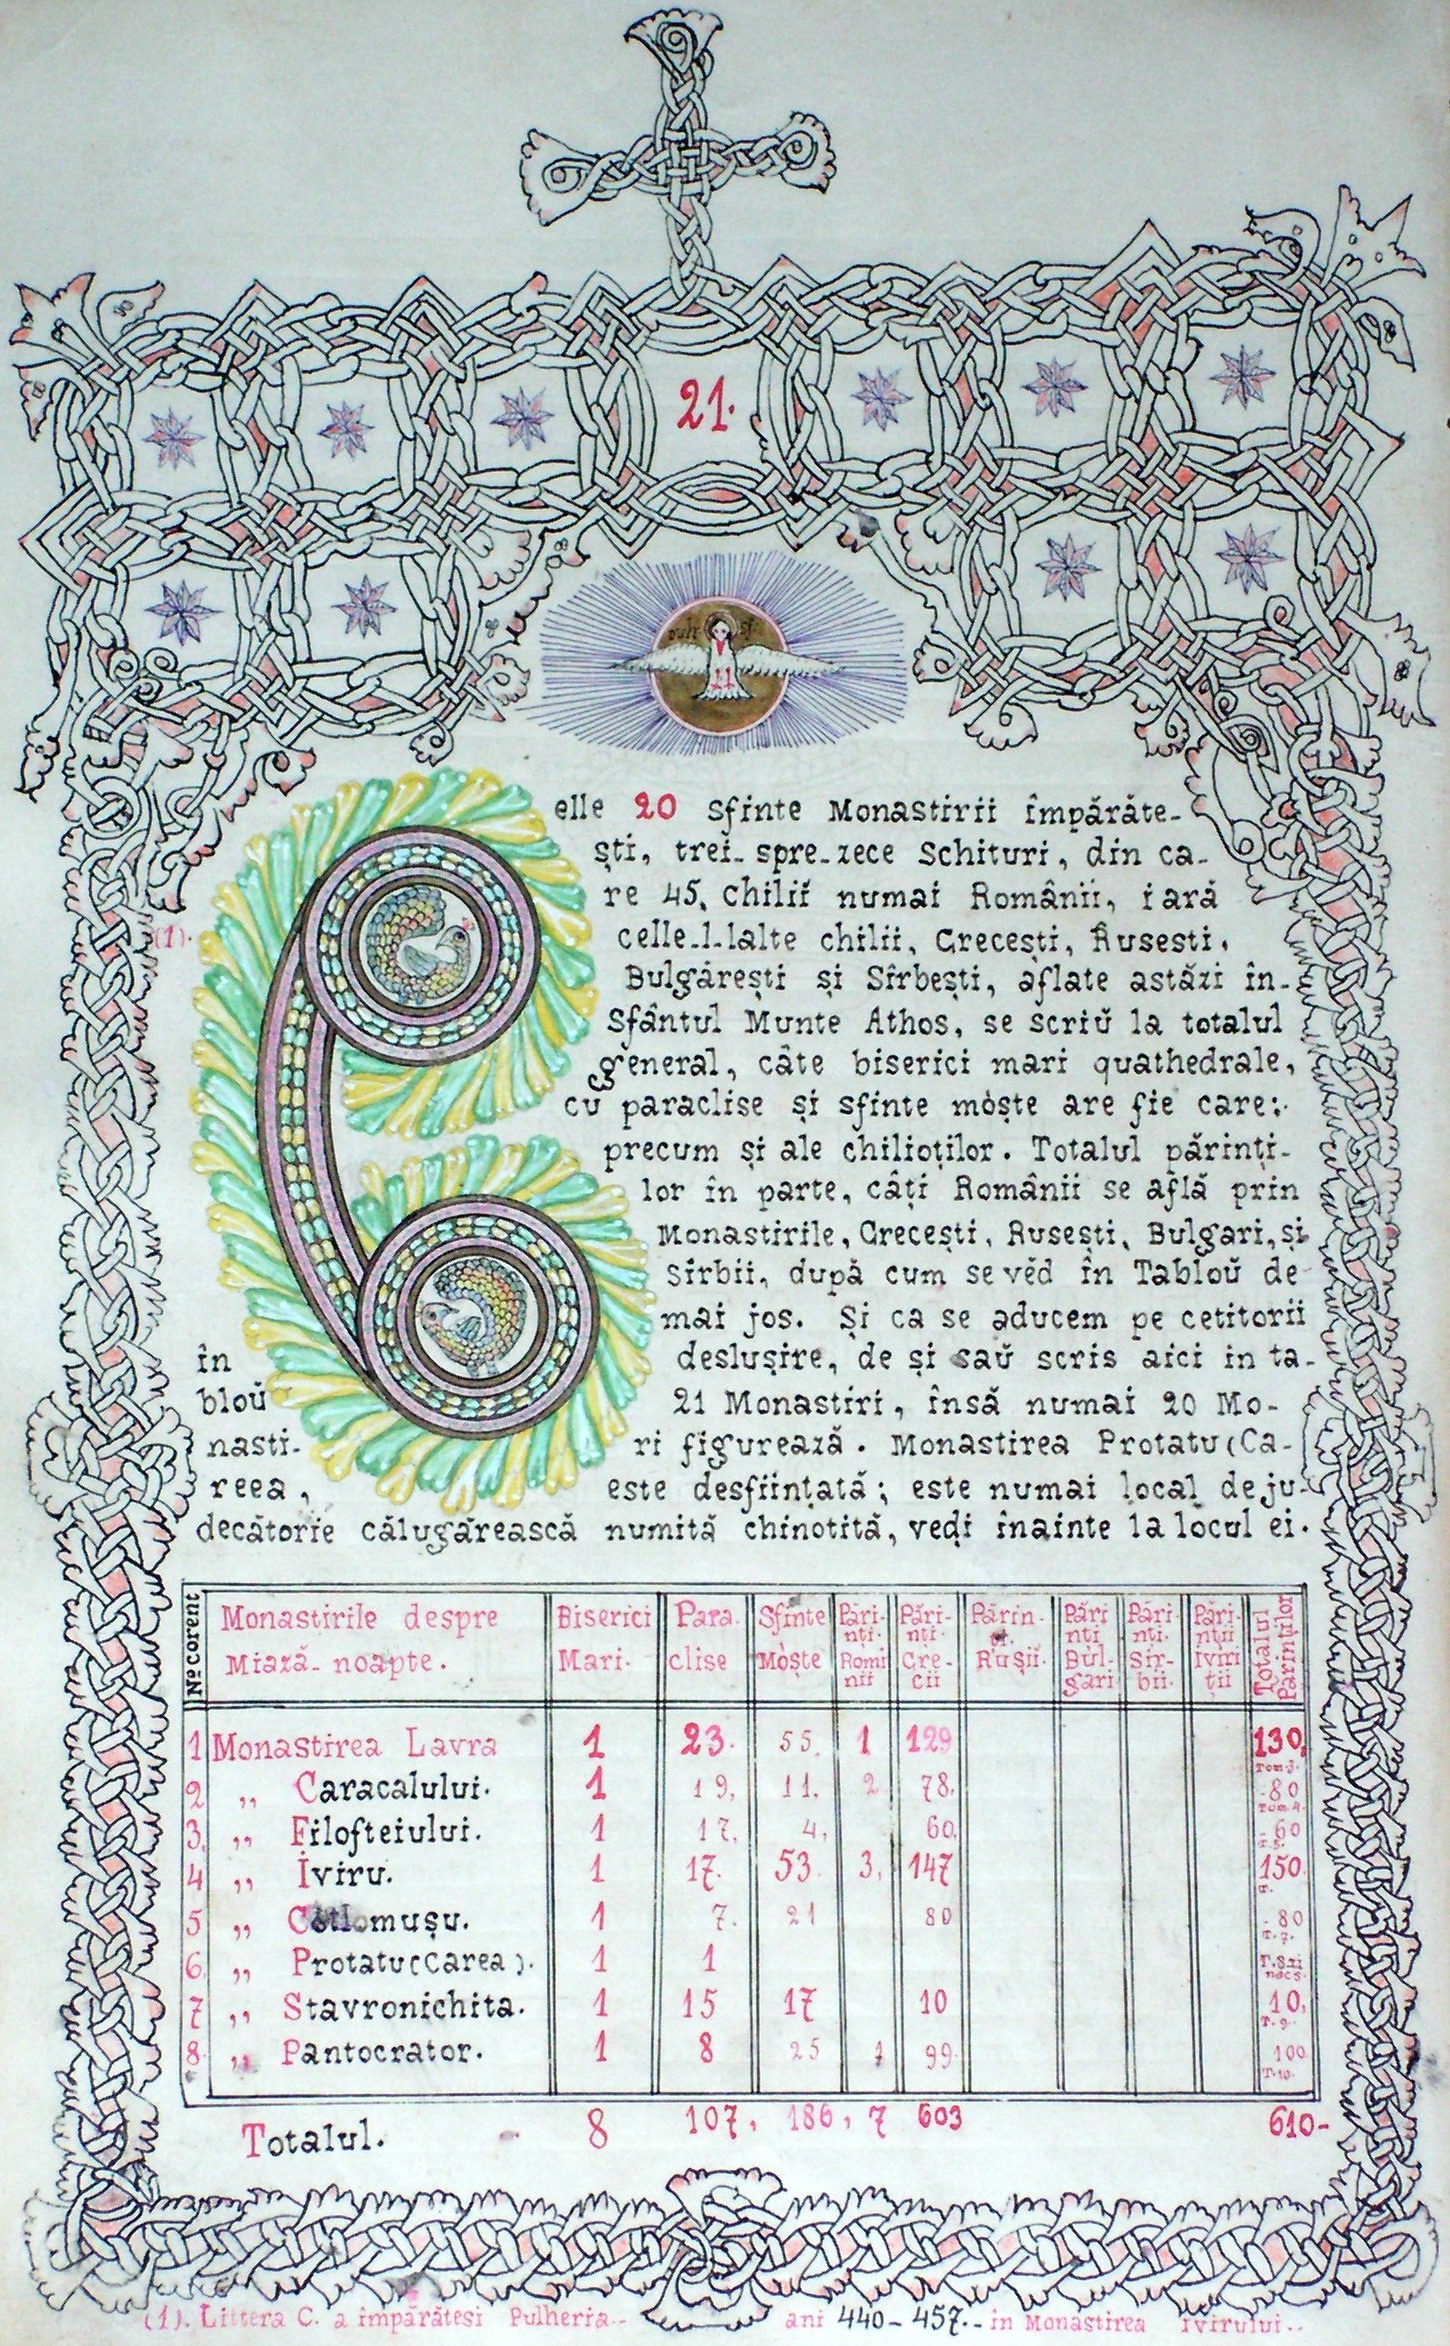 21.
duh sf.
Celle 20 sfinte Monastirii împărăte-
ști, trei-spre-zece Schituri, din ca-
re 45, chilii numai Românii, iară
(1).
celle-l-lalte chilii, Grecești, Rusesti,
Bulgărești și Sîrbești, aflate astăzi în-
Sfântul Munte Athos, se scriŭ la totalul
general, câte biserici mari quathedrale,
cu paraclise și sfinte mòște are fie care;
precum și ale chilioților. Totalul părinți-
lor în parte, câți Românii se află prin
Monastirile, Grecești, Rusești, Bulgari, și
Sîrbii, după cum se vĕd în Tabloŭ de
mai jos. Și ca se aducem pe cetitorii
în deslușire, de și saŭ scris aici in ta-
bloŭ 21 Monastiri, însă numai 20 Mo-
nasti-ri figurează. Monastirea Protatu (Ca-
reea, este desființată; este numai local de ju-
decătorie călugărească numită chinotită, vedi înainte la locul ei.
No corent Monastirile despre Miază-noapte. Biserici Mari. Para clise Sfinte Mòște Pări-nți Romi nii Pări-nți Gre-cii Părin-ți Rușii. Pări nți Bul-gari Pări nți Sîr-bii. Pări nții Iviri ții Totalul Parinților
1 Monastirea Lavra 1 23. 55. 1 129 130,
Tom.3.
2 ,, Caracalului. 1 19, 11. 2 78, -80
Tom.4.
3, ,, Filofteiului. 1 17. 4, 60, -60
T.5.
4 ,, Iviru. 1 17. 53 3, 147 150
T.
5 ,, Cotlomușu. 1 7. 21 80 -80
T.7.
6 ,, Protatu (Carea). 1 1
7 ,, Stavronichita. 1 15 17 10 10,
T.9.
8. ,, Pantocrator. 1 8 25 1 99 100
T.10.
Totalul. 8 107, 186, 7 603 610-
(1). Littera C. a împărătesi Pulheria- ani 440-457.- în Monastirea Ivirului..